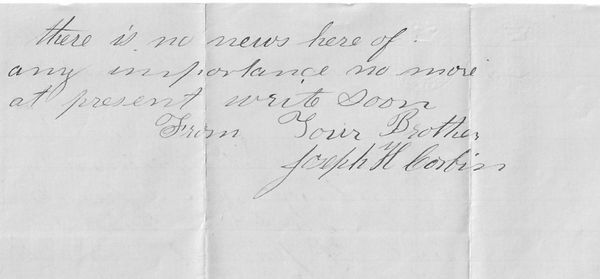 there is no news here of
any importance no more
at present write soon
From Your Brother
Joseph H Corbin